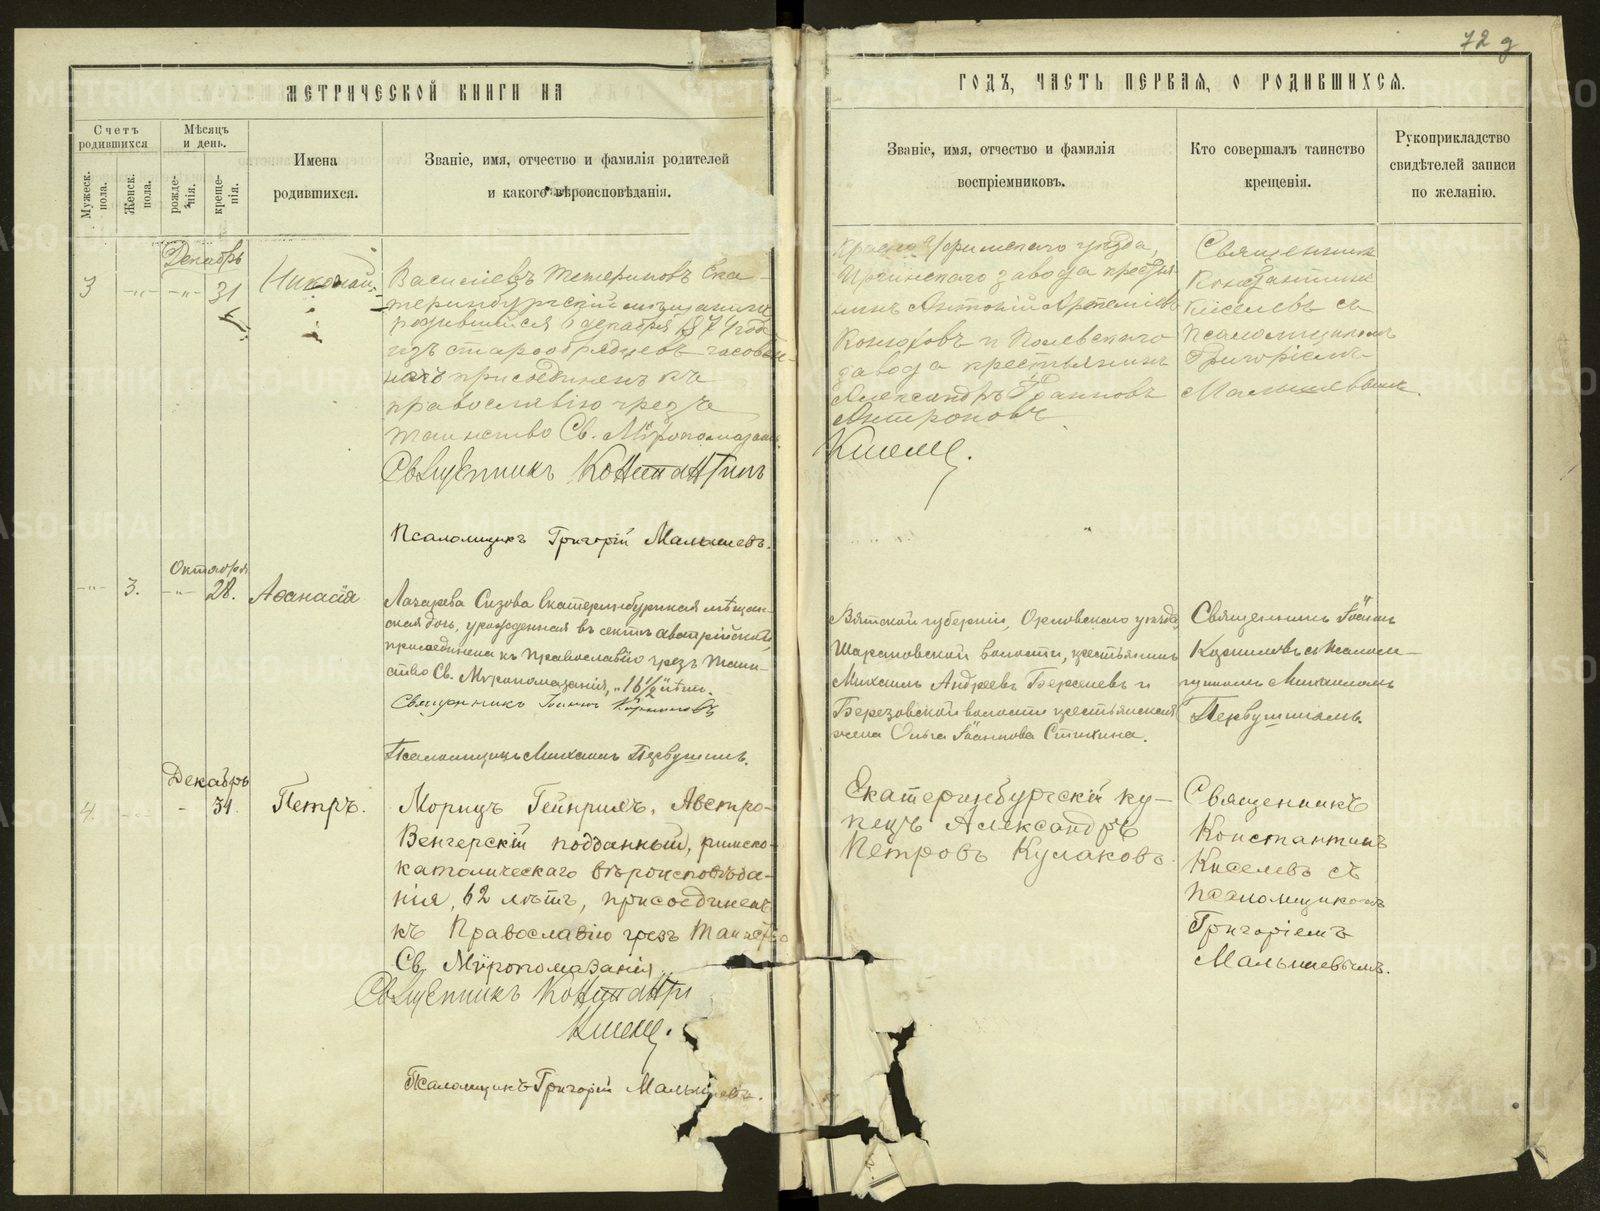 72 д
МЕТРИЧЕСКОЙ КНИГИ НА
ГОДЪ, ЧАСТЬ ПЕРВАЯ, О РОДИВШИХСЯ.
Счетъ родившихся
Мужеск. пола.
Женск. пола.
Мѣсяцъ и день.
рожде-нія.
креще-нія.
Имена
родившихся.
Званіе, имя, отчество и фамилія родителей
и какого вѣроисповѣданія.
Званіе, имя, отчество и фамилія
воспріемниковъ.
Кто совершалъ таинство
крещенія.
Рукоприкладство
свидѣтелей записи
по желанію.
Декабрь
3
31
Николай
Васильевъ Тетеринъ Ека-
теринбургскій мѣщанинъ
родившійся 6 декабря 1874 года
изъ старообрядцевъ часовен-
ныхъ присоединенъ къ
православію чрезъ
таинство Св. Мѵропомазанія
Священникъ Константинъ
Псаломщикъ Григорій Малышевъ.
Красноуфимскаго уѣзда,
завода крестья-
нинъ Антоній Артеміевъ
и Полевского
завода крестьянинъ
Александръ Іоанновъ
Антроповъ
Киселев.
Священникъ
Константинъ
Киселевъ съ
псаломщикомъ
Григоріемъ
Малышевымъ.
Октября
3.
28.
Аѳанасія
Лазарева Сизова Екатеринбургская мѣщан-
ская дочь, урожденная въ сектѣ австрійской,
присоединена къ Православію чрезъ таин-
ство Св. Мѵропомазанія, 16 1/2 лѣтъ.
Священникъ Іоаннъ Корниловъ
Псаломщикъ Михаилъ Первушинъ.
Вятской губерніи, Орловскаго уѣзда,
волости, крестьянинъ
Михаилъ Андреевъ и
Березовской волости крестьянская
жена Ольга Іоаннова
Священникъ Іоаннъ
Корниловъ съ псалом-
щикомъ Михаиломъ
Первушинымъ.
Декабрь
4.
31.
Петръ.
Морицъ Гейнрихъ, Австро-
Венгерскій подданный, римско-
католическаго вѣроисповѣда-
нія, 62 лѣтъ, присоединенъ
къ Православію чрезъ таинство
Св. Мѵропомазанія
Священникъ Константин
Киселев.
Псаломщикъ Григорій Малышевъ.
Екатеринбургскій ку-
пецъ Александръ
Петровъ Кулаковъ
Священникъ
Константинъ
Киселевъ съ
псаломщикомъ
Григоріемъ
Малышевымъ.
METRIKI.GASO-URAL.RU